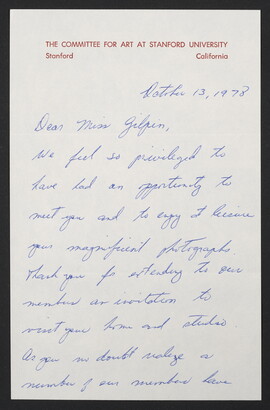 THE COMMITTEE FOR ART AT STANFORD UNIVERSITY
Stanford California
October 13, 1978
Dear Miss Gilpin,
We feel so privileged to
have had an opportunity to
meet you and to enjoy
your magnificent photographs
Thank you for extending to our
members an invitation to
visit your home and studio
As you no doubt realize a
number of our members have